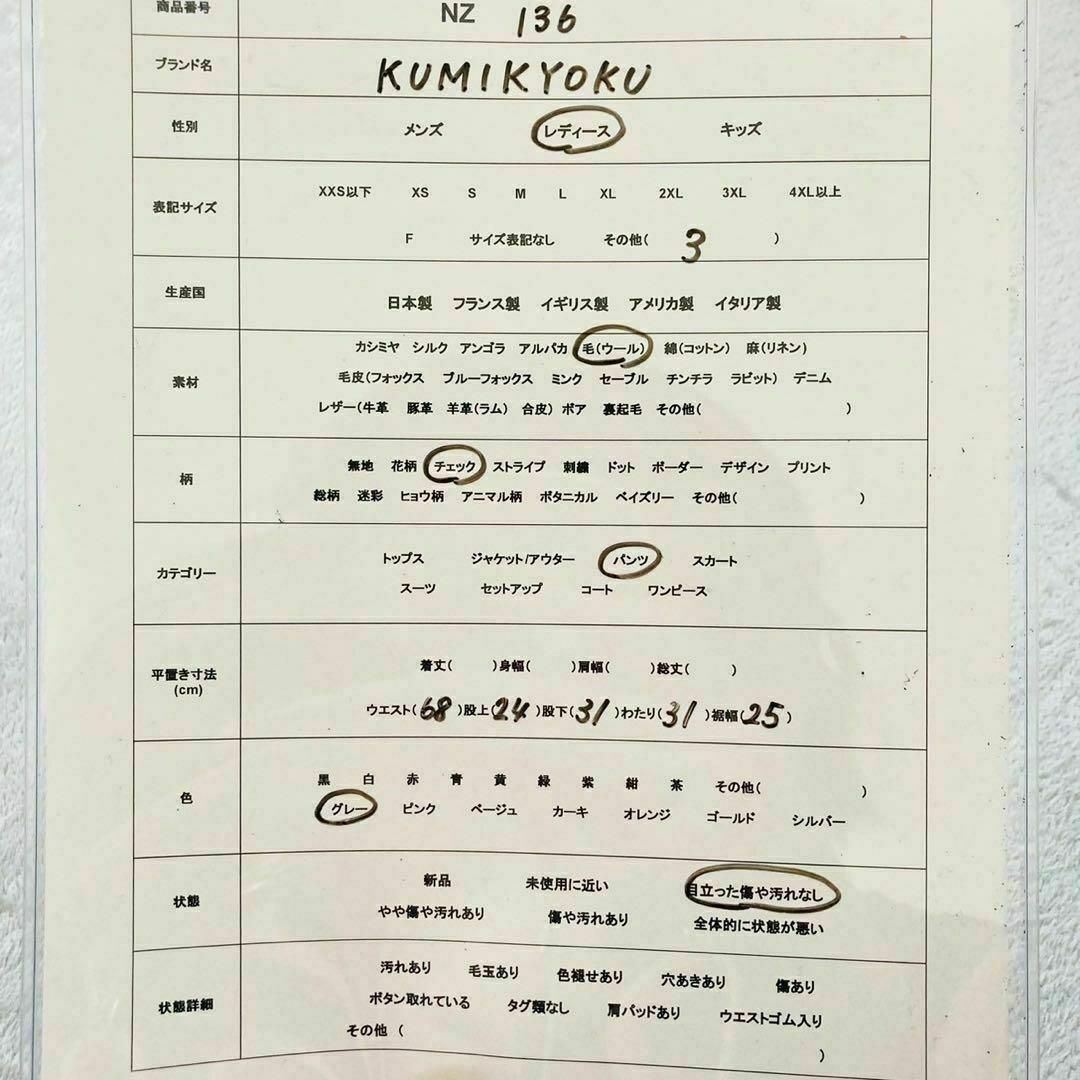 商品番号 NZ 136
ブランド名 KUMIKYOKU
性別 メンズ レディース キッズ
表記サイズ XXS以下 XS S M L XL 2XL 3XL 4XL以上
F サイズ表記なし その他( 3 )
生産国 日本製 フランス製 イギリス製 アメリカ製 イタリア製
素材 カシミヤ シルク アンゴラ アルパカ 毛(ウール) 綿(コットン) 麻(リネン)
毛皮(フォックス ブルーフォックス ミンク セーブル チンチラ ラビット) デニム
レザー(牛革 豚革 羊革(ラム) 合皮) ボア 裏起毛 その他( )
柄 無地 花柄 チェック ストライプ 刺繍 ドット ボーダー デザイン プリント
総柄 迷彩 ヒョウ柄 アニマル柄 ボタニカル ペイズリー その他( )
カテゴリー トップス ジャケット/アウター パンツ スカート
スーツ セットアップ コート ワンピース
平置き寸法 (cm) 着丈( )身幅( )肩幅( )総丈( )
ウエスト(68)股上(24)股下(31)わたり(31)裾幅(25)
色 黒 白 赤 青 黄 緑 紫 紺 茶 その他( )
グレー ピンク ベージュ カーキ オレンジ ゴールド シルバー
状態 新品 未使用に近い 目立った傷や汚れなし
やや傷や汚れあり 傷や汚れあり 全体的に状態が悪い
状態詳細 汚れあり 毛玉あり 色褪せあり 穴あきあり 傷あり
ボタン取れている タグ類なし 肩パッドあり ウエストゴム入り
その他 ( )